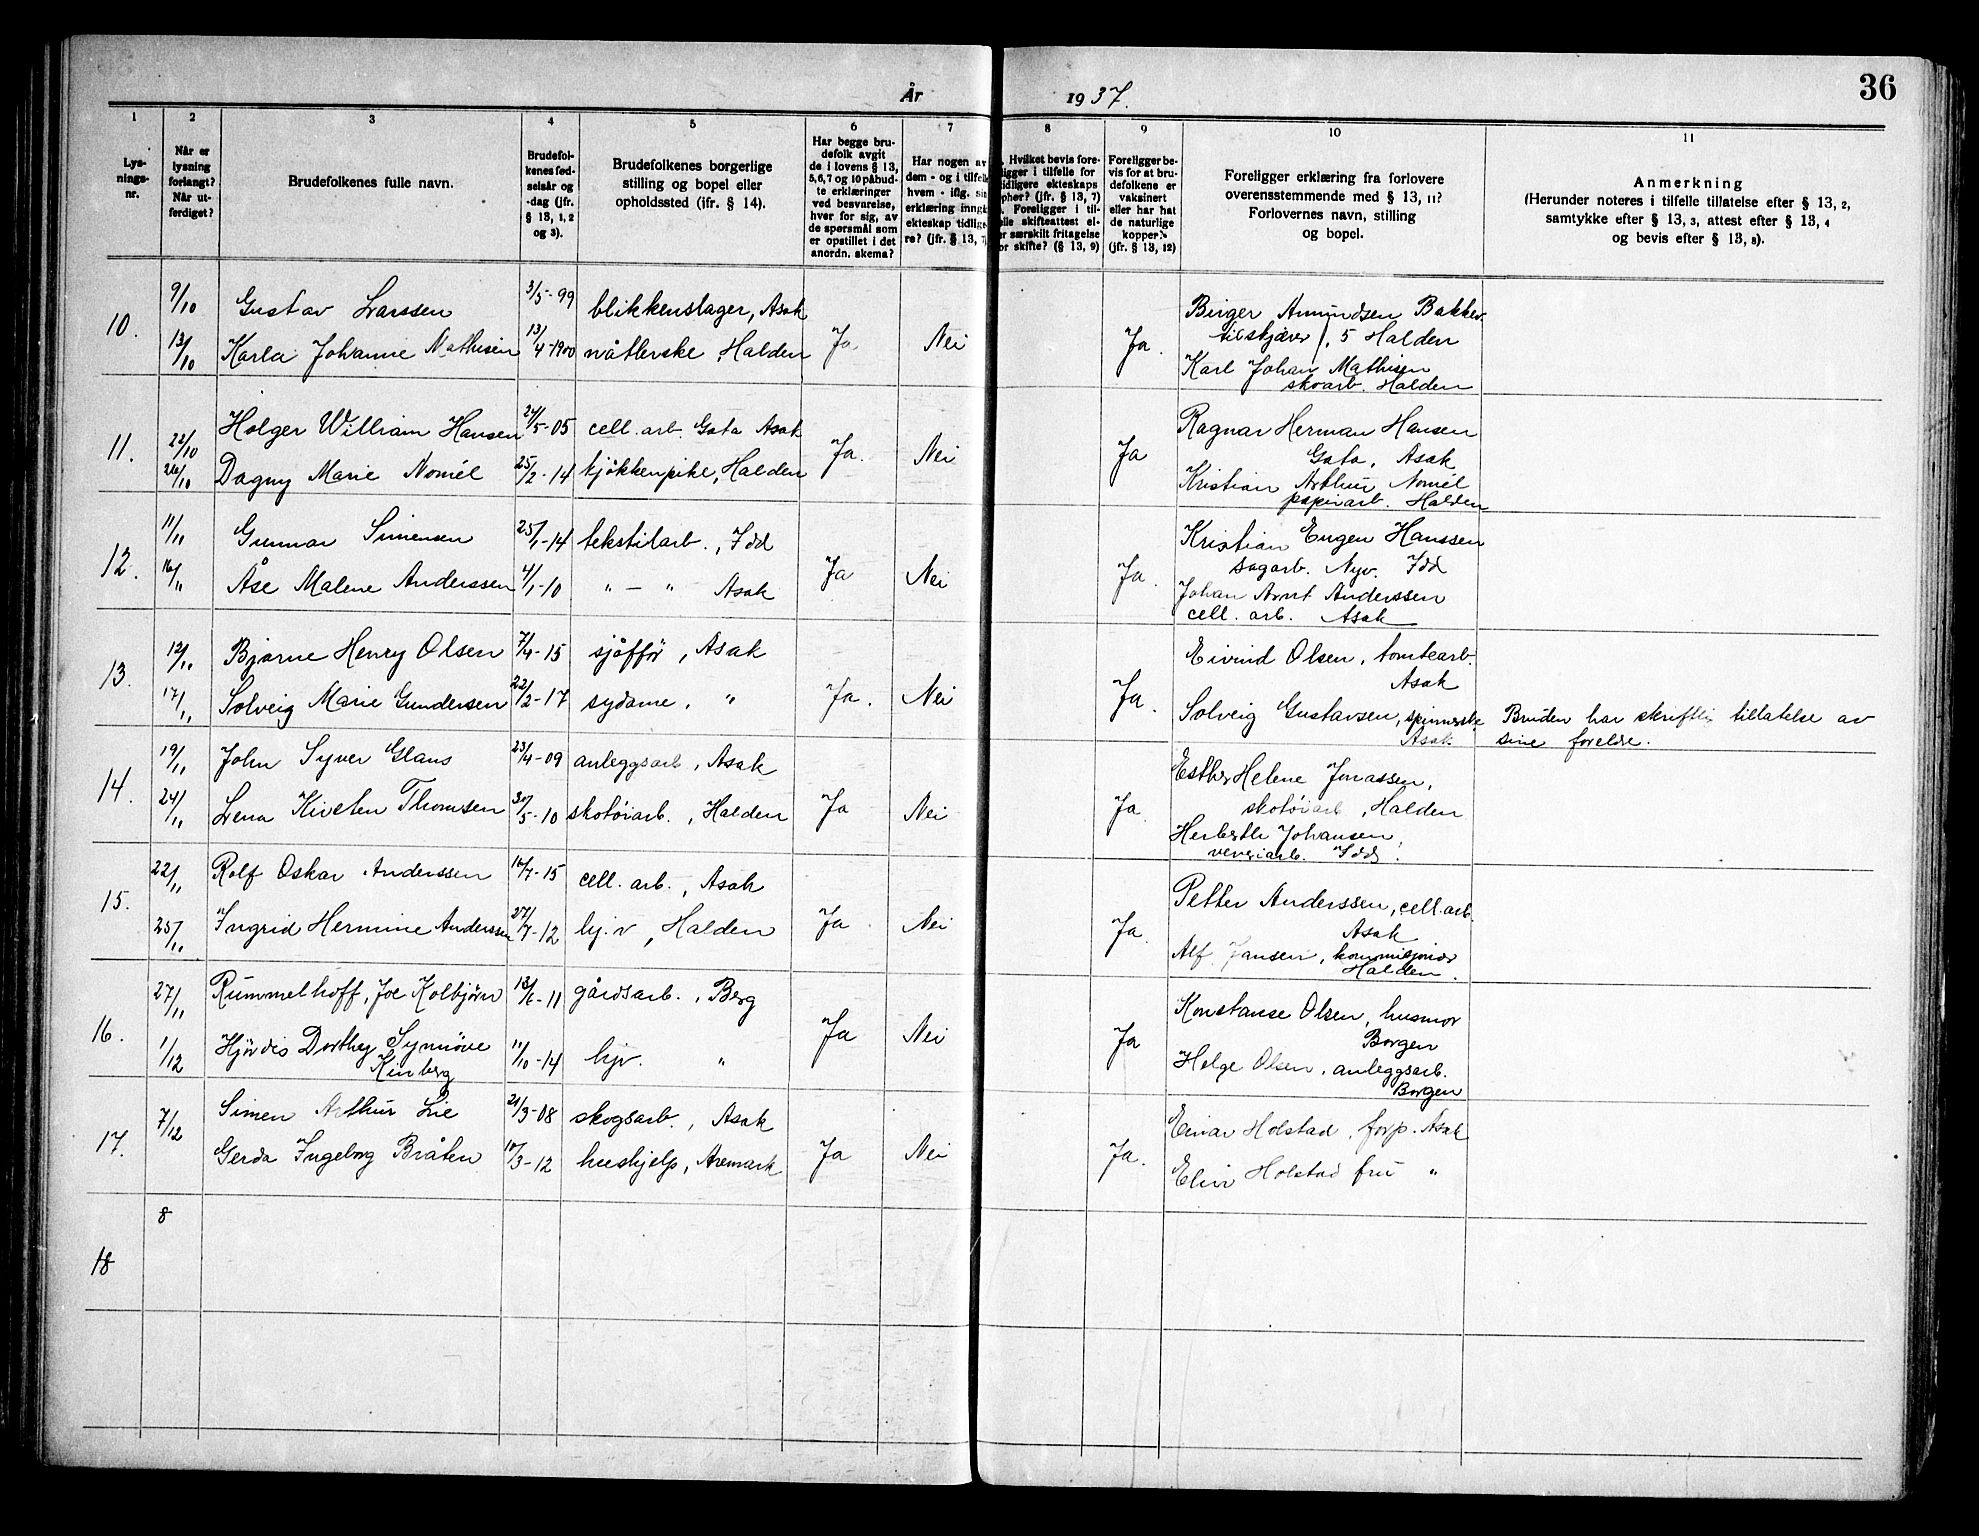 36
År 1937.
1 2 3 4 5 6 7 8 9 10 11
Lys-
nings-
nr.
Når er
lysning
forlangt?
Når ut-
ferdiget?
Brudefolkenes fulle navn.
Brudefol-
kenes fød-
selsår og
-dag (jfr.
§ 13, 1, 2
og 3).
Brudefolkenes borgerlige
stilling og bopel eller
opholdssted (ifr. § 14).
Har begge bru-
defolk avgit
de i lovens § 13,
5,6,7 og 10 påbud-
te erklæringer
ved besvarelse,
hver for sig, av
de spørsmål som
er opstillet i det
anordn. skema?
Har nogen av
dem - og i tilfelle
hvem - iflg. sin
erklæring inngått
ekteskap tidlige-
re? (jfr. § 13, 7)
Hvilket bevis fore-
ligger i tilfelle for
tidligere ekteskaps
opher? (jfr. § 13, 7)
Foreligger i til-
elle skifteattest el-
er særskilt fritagelse
or skifte? (§ 13, 9)
Foreligger be-
vis for at bru-
defolkene er
vaksinert
eller har hat
de naturlige
kopper?
(jfr. § 13, 12)
Foreligger erklæring fra forlovere
overensstemmende med § 13, 11?
Forlovernes navn, stilling
og bopel.
Anmerkning
(Herunder noteres i tilfelle tillatelse efter § 13, 2,
samtykke efter § 13, 3, attest efter § 13, 4
og bevis efter § 13, 8).
10.
9/10 Gustav Larssen 3/5-99 blikkenslager, Asak
13/10 Karla Johanne Mathisen 13/4-1900 nåtlerske, Halden Ja Nei Ja.
Birger Amundsen Bakker
tilskjærer, 5 Halden
Karl Johan Mathisen
skoarb. Halden
11.
22/10 Holger William Hansen 24/5-05 cell. arb. Gata Asak
26/10 Dagny Marie Nomél 25/2-14 kjøkkenpike, Halden Ja. Nei Ja
Ragnar Herman Hansen
Gata, Asak
Kristian Arthur Nomél
papirarb. Halden
12.
11/11 Gunnar Simensen 25/1-14 tekstilarb., Idd
16/11 Åse Malene Anderssen 4/1-10 " — " Asak Ja Nei Ja.
Kristian Eugen Hanssen
sagarb. Nyv. Idd
Johan Arnt Anderssen
cell. arb. Asak
13.
12/11 Bjarne Henry Olsen 7/4-15 sjåffør, Asak
17/11 Solveig Marie Gundersen 22/2-17 sydame, " Ja. Nei Ja.
Eivind Olsen, tomtearb.
Asak
Solveig Gustavsen, spinnerske
Asak
Bruden har skriftlig tillatelse av
sine forelse.
14.
19/11 John Syver Glans 23/4-09 anleggsarb, Asak
24/11 Lena Kirsten Thomsen 30/5-10 skotøiarb., Halden Ja Nei Ja
Esther Helene Jonassen,
skotøiarb, Halden
Herberth Johansen,
veveriarb. Idd.
15.
22/11 Rolf Oskar Anderssen 16/7-15 cell. arb., Asak
25/11 Ingrid Hermine Anderssen 27/7-12 hj. v, Halden Ja Nei Ja.
Petter Anderssen, cell. arb.
Asak
Alf Jansen, kommisjonær
Halden.
16.
27/11 Rummelhoff, Joe Kolbjørn 18/6-11 gårdsarb., Berg
1/12 Hjørdis Dorthey Synnøve 11/10-14 hjv. " Ja Nei Ja
Kinberg
Konstanse Olsen, husmor
Borgen
Helge Olsen, anleggsarb.
Borgen
17.
7/12 Simen Arthur Lie 21/3-08 skogsarb., Asak
Gerda Ingeborg Bråten 10/3-12 hushjelp, Aremark Ja Nei Ja.
Einar Holstad, forp. Asak
Elin Holstad fru "
8
18